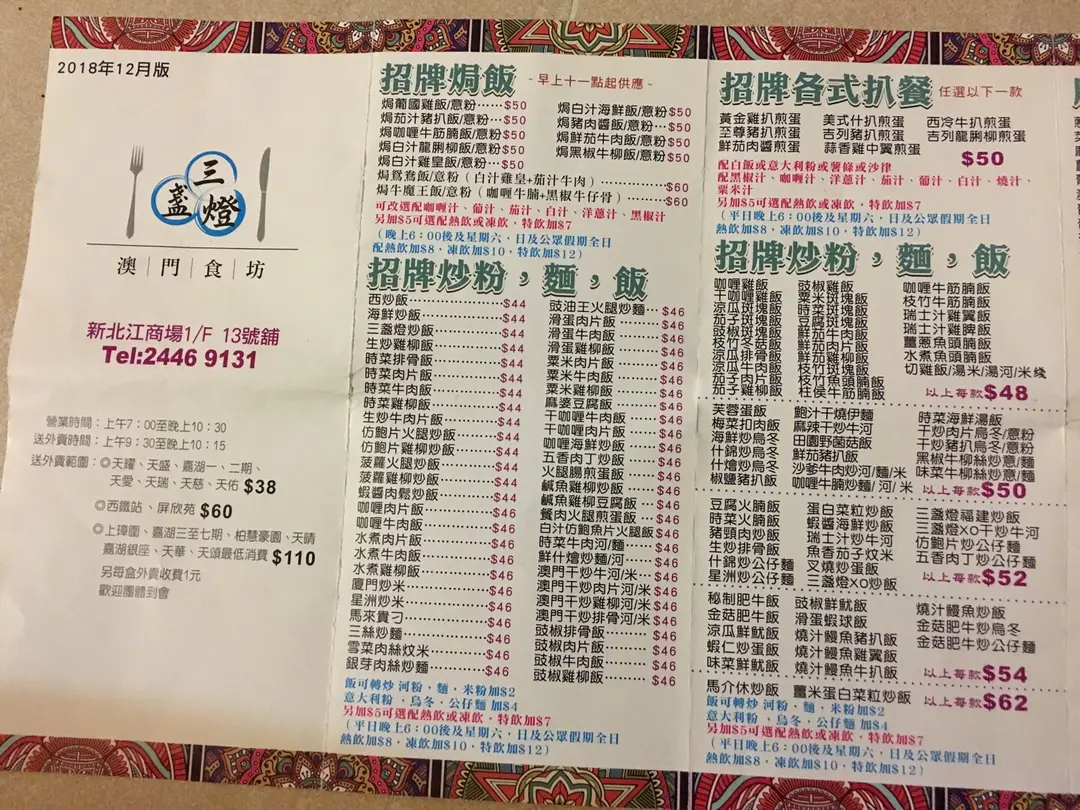 2018年12月版
三
盞
燈
澳|門|食|坊
新北江商場1/F 13號舖
Tel:2446 9131
營業時間：上午7：00至晚上10：30
送外賣時間：上午9：30至晚上10：15
送外賣範圍：◎天耀、天盛、嘉湖一、二期、
天愛、天瑞、天慈、天佑 $38
◎西鐵站、屏欣苑 $60
◎上璋圍、嘉湖三至七期、柏慧豪園、天晴
嘉湖銀座、天華、天頌最低消費 $110
另每盒外賣收費1元
歡迎團體到會
招牌焗飯 -早上十一點起供應-
焗葡國雞飯/意粉……$50
焗茄汁豬扒飯/意粉…$50
焗咖喱牛筋腩飯/意粉$50
焗白汁龍脷柳飯/意粉$50
焗白汁雞皇飯/意粉…$50
焗白汁海鮮飯/意粉$50
焗豬肉醬飯/意粉…$50
焗鮮茄牛肉飯/意粉$50
焗黑椒牛柳飯/意粉$50
焗鴛鴦飯/意粉（白汁雞皇+茄汁牛肉）…………$60
焗牛魔王飯/意粉（咖喱牛腩+黑椒牛仔骨）………$60
可改選配咖喱汁、葡汁、茄汁、白汁、洋蔥汁、黑椒汁
另加$5可選配熱飲或凍飲，特飲加$7
（晚上6：00後及星期六，日及公眾假期全日
配熱飲加$8，凍飲加$10，特飲加$12）
招牌炒粉，麵，飯
西炒飯…………$44
海鮮炒飯…………$44
三盞燈炒飯…………$44
生炒雞柳飯…………$44
時菜排骨飯…………$44
時菜肉片飯…………$44
時菜牛肉飯…………$44
時菜雞柳飯…………$44
生炒牛肉片飯…………$46
仿鮑片火腿炒飯…………$46
仿鮑片雞柳炒飯…………$46
菠蘿火腿炒飯…………$46
菠蘿雞柳炒飯…………$46
蝦醬肉鬆炒飯…………$46
咖喱肉片飯…………$46
咖喱牛肉飯…………$46
水煮肉片飯…………$46
水煮牛肉飯…………$46
水煮雞柳飯…………$46
廈門炒米…………$46
星洲炒米…………$46
馬來貴刁…………$46
三絲炒麵…………$46
雪菜肉絲炆米…………$46
銀芽肉絲炒麵…………$46
豉油王火腿炒麵…$46
滑蛋肉片飯……$46
滑蛋牛肉飯……$46
滑蛋雞柳飯……$46
粟米肉片飯……$46
粟米牛肉飯……$46
粟米雞柳飯……$46
麻婆豆腐飯……$46
干咖喱牛肉飯…$46
干咖喱肉片飯…$46
咖喱海鮮炒飯…$46
五香肉丁炒飯…$46
火腿腸煎蛋飯…$46
鹹魚雞柳炒飯…$46
鹹魚雞柳豆腐飯…$46
餐肉火腿煎蛋飯…$46
白汁仿鮑魚片火腿飯$46
時菜牛肉河/麵…$46
鮮什燴炒麵/河…$46
澳門干炒牛河/米…$46
澳門干炒肉片河/米$46
澳門干炒雞柳河/米$46
澳門干炒排骨河/米$46
豉椒排骨飯……$46
豉椒肉片飯……$46
豉椒牛肉飯……$46
豉椒雞柳飯……$46
飯可轉炒 河粉，麵，米粉加$2
意大利粉，烏冬，公仔麵 加$4
另加$5可選配熱飲或凍飲，特飲加$7
（平日晚上6：00後及星期六，日及公眾假期全日
熱飲加$8，凍飲加$10，特飲加$12）
招牌各式扒餐 任選以下一款
黃金雞扒煎蛋 美式什扒煎蛋 西冷牛扒煎蛋
至尊豬扒煎蛋 吉列豬扒煎蛋 吉列龍脷柳煎蛋
鮮茄肉醬煎蛋 蒜香雞中翼煎蛋 $50
配白飯或意大利粉或薯條或沙律
配黑椒汁、咖喱汁、洋蔥汁、茄汁、葡汁、白汁，燒汁，
粟米汁
另加$5可選配熱飲或凍飲，特飲加$7
（平日晚上6：00後及星期六，日及公眾假期全日
熱飲加$8，凍飲加$10，特飲加$12）
招牌炒粉，麵，飯
咖喱雞飯 豉椒雞飯 咖喱牛筋腩飯
干咖喱雞飯 粟米斑塊飯 枝竹牛筋腩飯
涼瓜斑塊飯 茄子斑塊飯 瑞士汁雞翼飯
茄子斑塊飯 豆腐斑塊飯 瑞士汁雞脾飯
豉椒斑塊飯 鮮茄牛肉飯 薑蔥魚頭腩飯
枝竹冬菇飯 鮮茄肉片飯 水煮魚頭腩飯
涼瓜排骨飯 鮮茄雞柳飯 切雞飯/湯米/湯河/米綫
涼瓜牛肉飯 枝竹斑塊飯
茄子肉片飯 枝竹魚頭腩飯
茄子雞柳飯 柱侯牛筋腩飯 以上每款$48
芙蓉蛋飯 鮑汁干燒伊麵 時菜海鮮湯飯
梅菜扣肉飯 麻辣干炒牛河 干炒肉片烏冬/意粉
海鮮炒烏冬 田園野菌菇飯 干炒豬扒烏冬/意粉
什錦炒烏冬 鮮茄豬扒飯 黑椒牛柳絲炒意/麵
什燴炒烏冬 沙爹牛肉炒河/麵/米 味菜牛柳絲炒意/麵
椒鹽豬扒飯 咖喱牛腩炒麵/河/米 以上每款$50
豆腐火腩飯 蛋白菜粒炒飯 三盞燈福建炒飯
時菜火腩飯 蝦醬海鮮炒飯 三盞燈XO干炒牛河
豬頸肉炒飯 瑞士汁炒牛河 仿鮑片炒公仔麵
生炒排骨飯 魚香茄子炆米 五香肉丁炒公仔麵
什錦炒公仔麵 叉燒炒蛋飯
星洲炒公仔麵 三盞燈XO炒飯 以上每款$52
秘制肥牛飯 豉椒鮮魷飯 燒汁鰻魚炒飯
金菇肥牛飯 滑蛋蝦球飯 金菇肥牛炒烏冬
涼瓜鮮魷飯 燒汁鰻魚豬扒飯 金菇肥牛炒公仔麵
蝦仁炒蛋飯 燒汁鰻魚雞翼飯
味菜鮮魷飯 燒汁鰻魚牛扒飯 以上每款$54
馬介休炒飯 薑米蛋白菜粒炒飯 以上每款$62
飯可轉炒 河粉，麵，米粉加$2
意大利粉，烏冬，公仔麵 加$4
另加$5可選配熱飲或凍飲，特飲加$7
（平日晚上6：00後及星期六，日及公眾假期全日
熱飲加$8，凍飲加$10，特飲加$12）